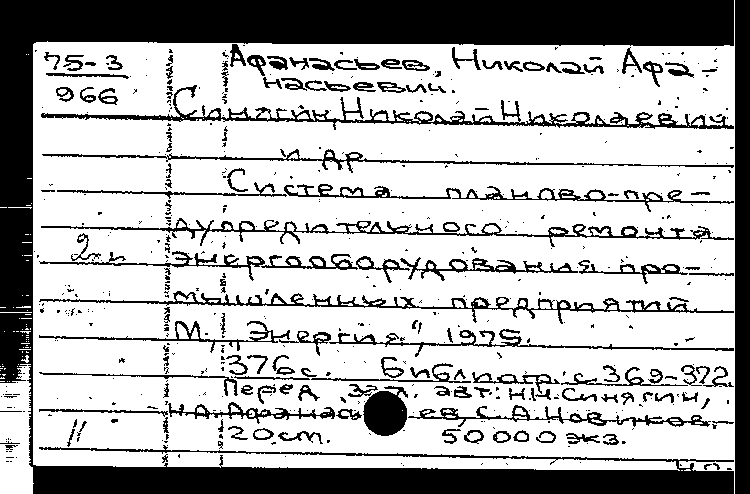 75-3
966
Афанасьев, Николай Афа-
насьевич.
Синягин, Николай Николаевич
и др
Система планово-пре-
дупредительного ремонта
энергооборудования про-
мышленных предприятий.
М., „Энергия", 1975.
376 с. Библиогр: с. 369-372
Перед загл. авт: Н.Н. Синягин,
Н.А. Афанасьев, С.А. Новиков.
20 см. 50000 экз.